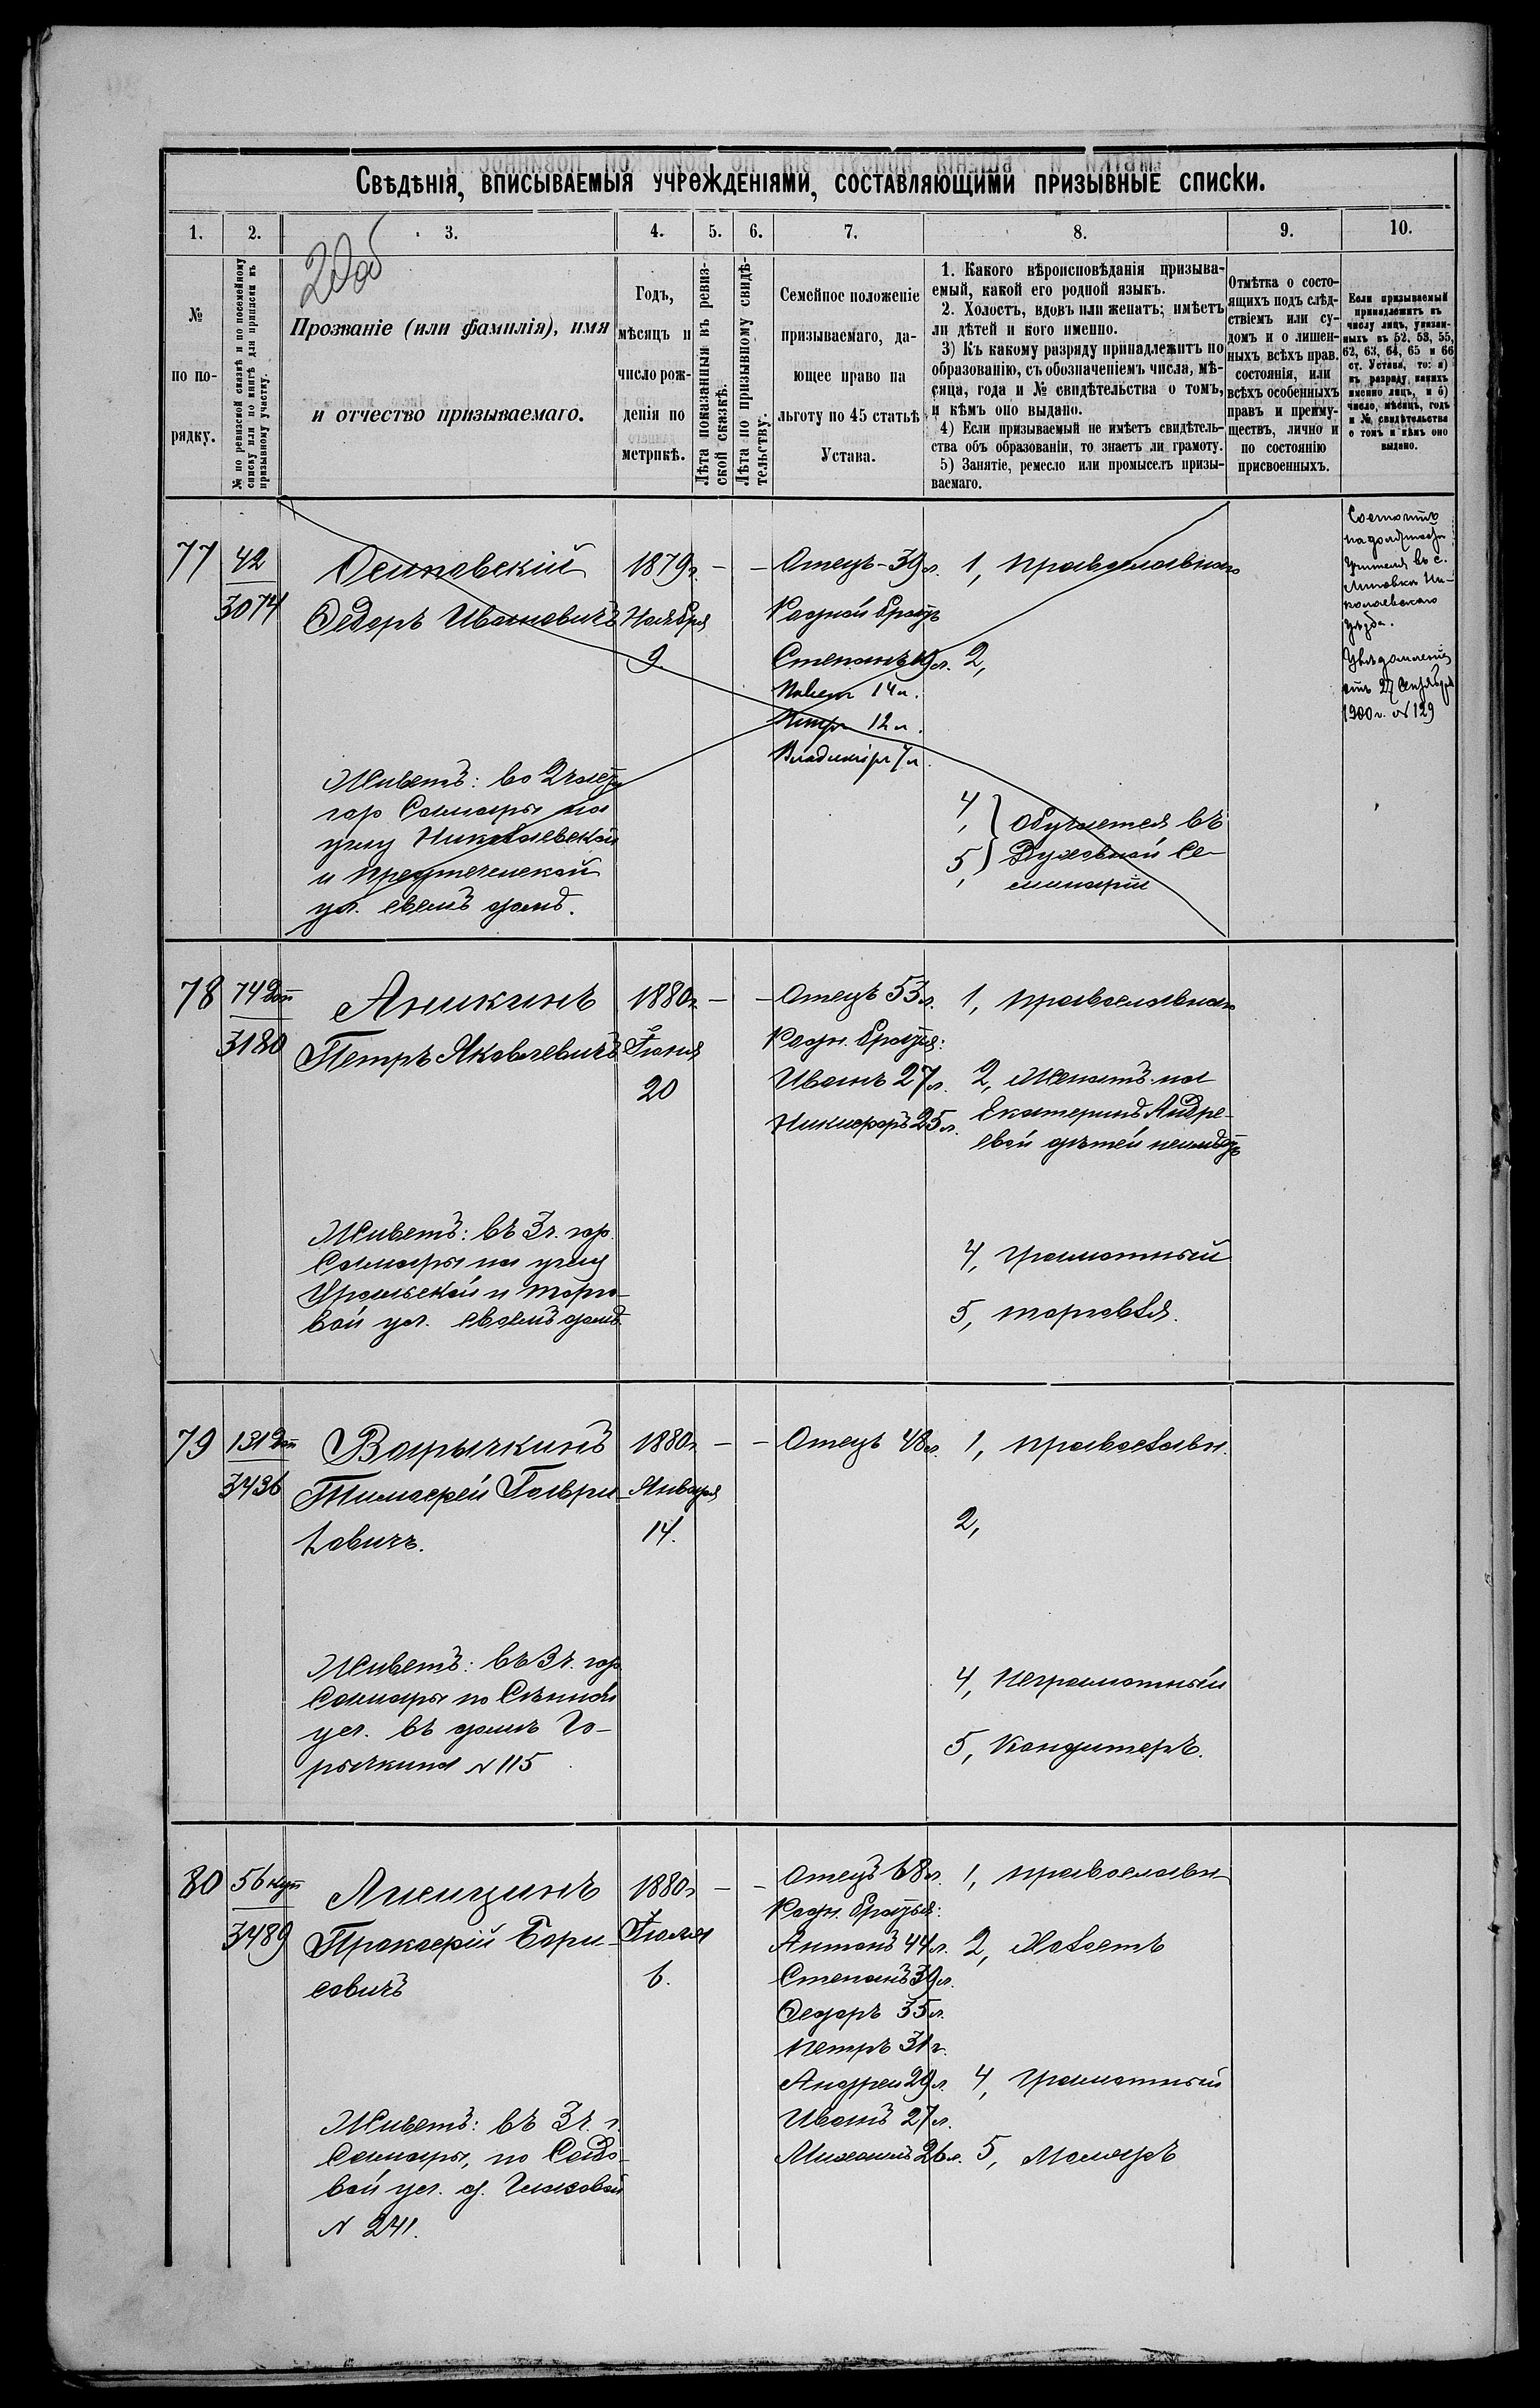 20об
Свѣдѣнія, вписываемыя учрежденіями, составляющими призывные списки.
1. 2. 3. 4. 5. 6. 7. 8. 9. 10.
№ по порядку.
№ по ревизской сказкѣ и по посемейному списку или по книгѣ для приписки къ призывному участку.
Прозваніе (или фамилія), имя
и отчество призываемаго.
Годъ,
мѣсяцъ и
число рож-
денія по
метрикѣ.
Лѣта показанныя въ ревиз-
ской сказкѣ.
Лѣта по призывному свидѣ-
тельству.
Семейное положеніе
призываемаго, да-
ющее право на
льготу по 45 статьѣ
Устава.
1. Какого вѣроисповѣданія призыва-
емый, какой его родной языкъ.
2. Холостъ, вдовъ или женатъ; имѣетъ
ли дѣтей и кого именно.
3) Къ какому разряду принадлежитъ по
образованію, съ обозначеніемъ числа, мѣ-
сяца, года и № свидѣтельства о томъ,
и кѣмъ оно выдано.
4) Если призываемый не имѣетъ свидѣтель-
ства объ образованіи, то знаетъ ли грамоту.
5) Занятіе, ремесло или промыселъ призы-
ваемаго.
Отмѣтка о состо-
ящихъ подъ слѣд-
ствіемъ или су-
домъ и о лишен-
ныхъ всѣхъ прав.
состоянія, или
всѣхъ особенныхъ
правъ и преиму-
ществъ, лично и
по состоянію
присвоенныхъ.
Если призываемый
принадлежитъ къ
числу лицъ, указан-
ныхъ въ 52, 53, 55,
62, 63, 64, 65 и 66
ст. Устава, то: а)
къ разряду какихъ
именно лицъ, и б)
число, мѣсяцъ, годъ
и № свидѣтельства
о томъ и кѣмъ оно
выдано.
77
42
3074
Осиповскій
Ѳедоръ Ивановичъ
1879г.
Ноября
9.
— —
Отецъ - 39 л.
Родной братъ
Степанъ 19 л.
Павелъ 14 л.
Петръ 12 л.
Владиміръ 7 л.
1, православнаго
2,
4,
5,
обучается въ
Духовной Се-
минаріи
Состоитъ
на должности
Учителя въ с.
Липовка Ни-
колаевскаго
уѣзда.
Увѣдомленіе
отъ 27 Сентября
1900 г. № 129
Живетъ: во 2 части
гор Самары на
углу Николаевской
и Предтеченской
ул. своемъ домѣ.
78
74 доп
3180
Аникинъ
Петръ Яковлевичъ
1880г.
Іюня
20
— —
Отецъ 53 л.
Родн. братья:
Иванъ 27 л.
Никифоръ 25 л.
1, православнаго
2, Женатъ на
Екатеринѣ Андре-
евой дѣтей неимѣетъ
4, грамотный
5, торговля.
Живетъ: въ 3 ч. гор.
Самары на углу
Уральской и торго-
вой ул. своемъ домѣ.
79
131 доп
3436
Варычкинъ
Тимофей Гаври-
ловичъ.
1880г.
Января
14.
— —
Отецъ 48 л.
1, православн.
2,
4, Неграмотный
5, Кондитеръ.
Живетъ: въ 3 ч. гор.
Самары по Сѣнной
ул. въ домѣ Го-
рычкина № 115
80
56
3489
Анисинъ
Прокофій Бори-
совичъ
1880г.
Іюля
6.
— —
Отецъ 68 л.
Родн. братья:
Антонъ 44 л.
Степанъ 39 л.
Ѳедоръ 35 л.
Петръ 31 г.
Андрей 29 л.
Иванъ 27 л.
Михаилъ 26 л.
1, православн
2, Холостъ
4, Грамотный
5, Маляръ
Живетъ: въ 3 ч. г.
Самары, по Садо-
вой ул. д.
№ 241.